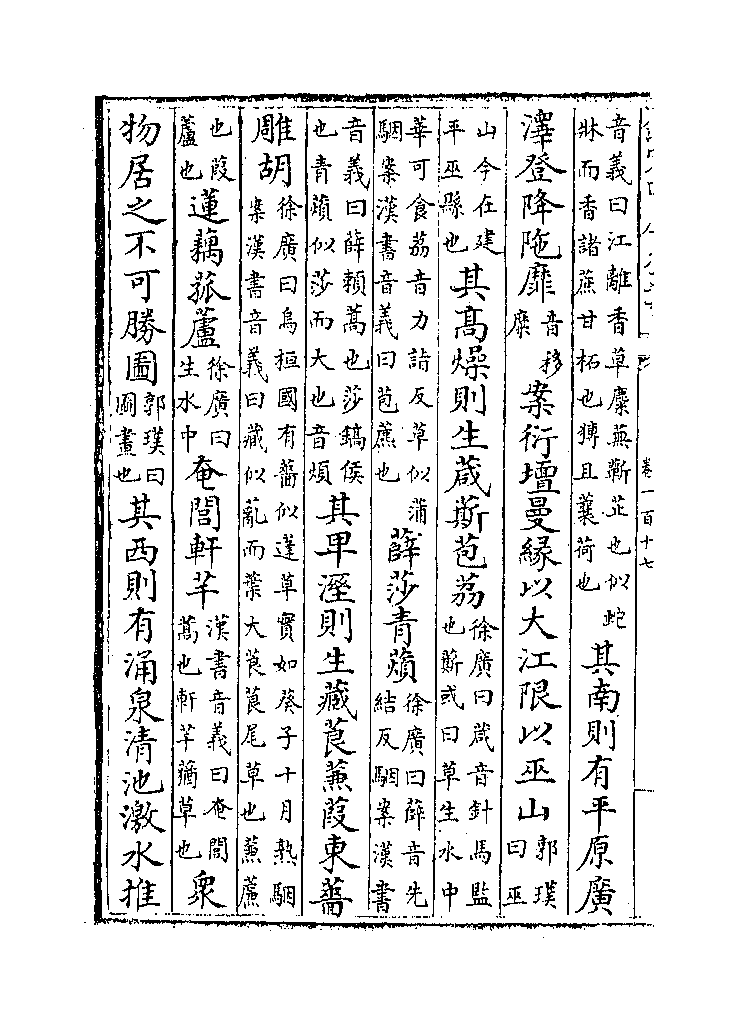 卷一百十七
音義曰江離香草麋蕪蘄芷也似蛇牀而香諸蔗甘柘也猼且蘘荷也其南則有平原廣
澤登降陁靡音移糜案衍壇曼緣以大江限以巫山郭璞曰巫
山今在建平巫縣也其髙燥則生葴蘄苞荔徐廣曰葴音針馬監也蘄或曰草生水中
華可食荔音力詣反草似蒲駰案漢書音義曰苞藨也薛莎青薠徐廣曰薛音先結反駰案漢書
音義曰薛賴蒿也莎鎬侯也青薠似莎而大也音煩其卑溼則生藏莨蒹葭東蘠
雕胡徐廣曰烏桓國有蘠似蓬草實如葵子十月熟駰案漢書音義曰藏似薍而葉大莨莨尾草也蒹藨
也葭蘆也蓮藕菰蘆徐廣曰生水中奄閭軒芋漢書音義曰奄閭蒿也軒芋蕕草也衆
物居之不可勝圖郭璞曰圖畫也其西則有涌泉清池激水推